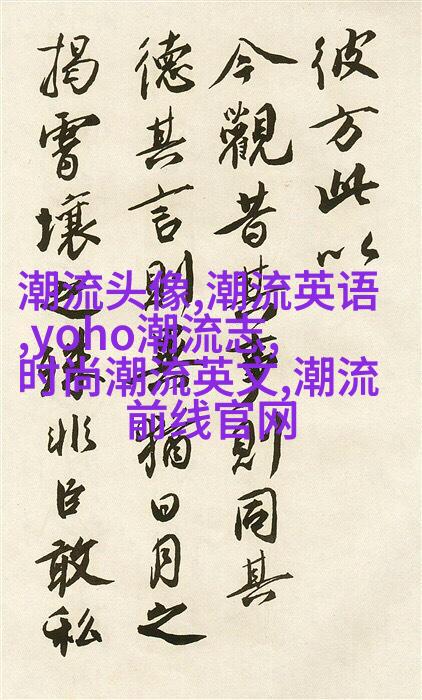 彼方此以
今觀昔其則同其
德其言則猶日月之
揭霄壤殊非臣敢私
潮流头像,潮流英语
,yoho潮流志,
时尚潮流英文,潮流
前线官网